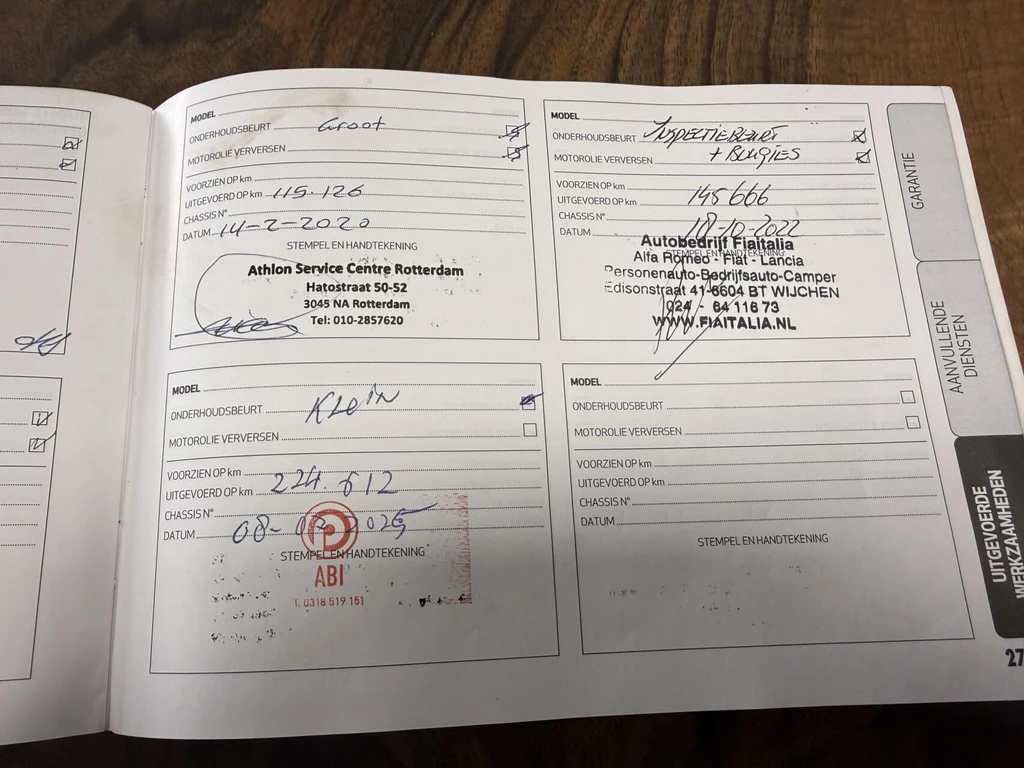 MODEL
ONDERHOUDSBEURT Groot
MOTOROLIE VERVERSEN
VOORZIEN OP km
UITGEVOERD OP km 115.126
CHASSIS N°
DATUM 14-2-2020
STEMPEL EN HANDTEKENING
Athlon Service Centre Rotterdam
Hatostraat 50-52
3045 NA Rotterdam
Tel: 010-2857620
MODEL
ONDERHOUDSBEURT INSPECTIEBEURT
MOTOROLIE VERVERSEN + BOUGIES
VOORZIEN OP km
UITGEVOERD OP km 148666
CHASSIS N°
DATUM 18-10-2022
STEMPEL EN HANDTEKENING
Autobedrijf Fiaitalia
Alfa Romeo - Fiat - Lancia
Personenauto-Bedrijfsauto-Camper
Edisonstraat 41-6604 BT WIJCHEN
024 - 64 116 73
WWW.FIAITALIA.NL
MODEL
ONDERHOUDSBEURT Klein
MOTOROLIE VERVERSEN
VOORZIEN OP km
UITGEVOERD OP km 224.612
CHASSIS N°
DATUM 08-07-2025
STEMPEL EN HANDTEKENING
ABI
T. 0318 519 151
MODEL
ONDERHOUDSBEURT
MOTOROLIE VERVERSEN
VOORZIEN OP km
UITGEVOERD OP km
CHASSIS N°
DATUM
STEMPEL EN HANDTEKENING
GARANTIE
AANVULLENDE
DIENSTEN
UITGEVOERDE
WERKZAAMHEDEN
27